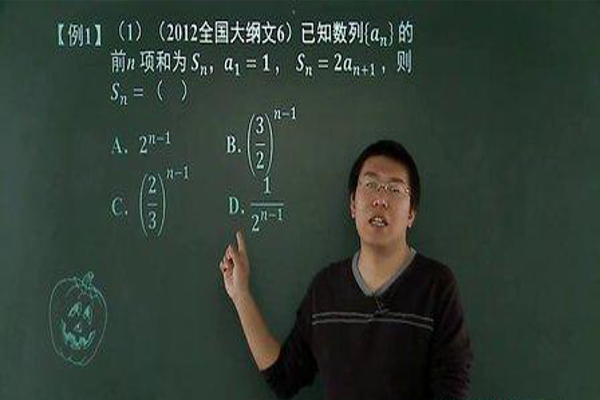 【例1】（1）（2012全国大纲文6）已知数列{aₙ}的
前n项和为Sₙ，a₁=1，Sₙ=2aₙ₊₁，则
Sₙ=（ ）
A. 2ⁿ⁻¹ B. (3/2)ⁿ⁻¹
C. (2/3)ⁿ⁻¹ D. 1/2ⁿ⁻¹